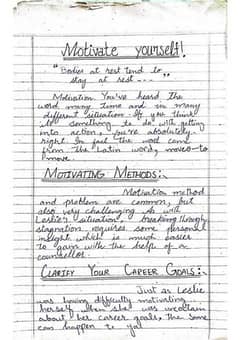 Motivate yourself!
"Bodies at rest tend to
stay at rest - - - - "
Motivation. You've heard the
word many time and in many
different situation. If you think
it something to do with getting
into action, you're absolutely
right. In fact the word came
from the Latin word, moveo-to
move.
MOTIVATING METHODS:-
Motivation method
and problem are common, but
also very challenging. As with
Leslie's situation, breaking through
stagnation requires some personal
insight which is much easier
to gain with the help of a
counsellor.
CLARIFY YOUR CAREER GOALS:-
Just as Leslie
was having difficulty motivating
herself when she was uncertain
about her career goals, the same
can happen to you